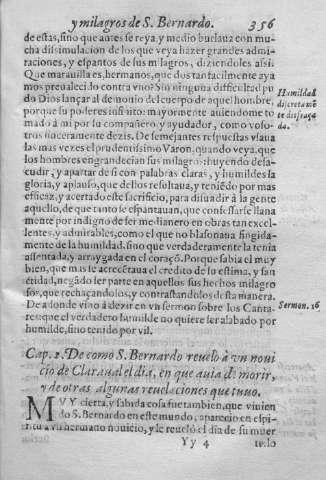 y milagros de S. Bernardo. 356
de estas, sino que antes se reya, y medio burlaua con mu-
cha dissimulacion de los que veya hazer grandes admi-
raciones, y espantos de sus milagros, diziendoles assi:
Que marauilla es, hermanos, que dos tan facilmente aya
mos preualecido contra vno? Sin ninguna difficultad pu
do Dios lançar al demonio del cuerpo de aquel hombre,
porque su poder es infinito: mayormente auiendome to
mado a mi por su compañero, y ayudador, como voso-
tros sinceramente dezis. De semejantes respuestas vsaua
las mas vezes el prudentissimo Varon, quando veya, que
los hombres engrandecian sus milagros: huyendo de sa-
cudir, y apartar de si con palabras claras, y humildes la
gloria, y aplauso, que dellos resultaua, y teniēdo por mas
efficaz, y acertado este sacrificio, para disuadir a la gente
aquello, de que tanto se espantauan, que confessarse llana
mente por indigno de ser medianero en obras tan excel-
lentes, y admirables, como el que no blasonaua fingida-
mente de la humildad, sino que verdaderamente la tenia
assentada, y arraygada en el coraçō. Porque sabia el muy
bien, que mas se acrecētaua el credito de su estima, y san
ctidad, negādo ser parte en aquellos sus hechos milagro
sos, que rechaçandolos, y contrastandolos desta manera.
De adonde vino à dezir en vn sermon sobre los Canta-
res: que el verdadero humilde no quiere ser alabado por
humilde, sino tenido por vil.
Humildad
discretamē
te disfraça
da.
Sermon. 16
Cap. 2. De como S. Bernardo reuelò à vn noui
cio de Claraual el dia, en que auia de morir,
y de otras algunas reuelaciones que tuuo.
MVY cierta, y sabida cosa fue tambien, que viuien
do S. Bernardo en este mundo, aparecio en espi-
ritu a vn hermano nouicio, y le reuelò el dia de su muer
Yy 4